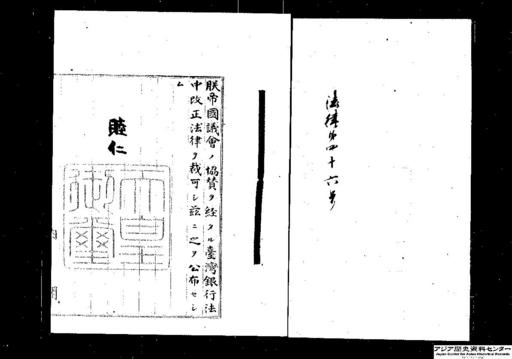 法律第四十六号
朕帝國議會ノ協賛ヲ経タル臺灣銀行法
中改正法律ヲ裁可シ茲ニ之ヲ公布セシ
ム
睦仁
天皇
御璽
内閣
アジア歴史資料センター
Japan Center for Asian Historical Records